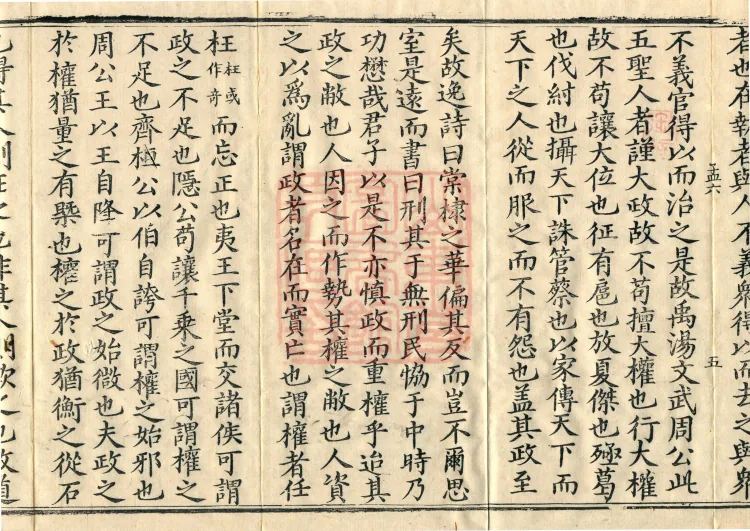 不義官得以而治之是故禹湯文武周公此
五聖人者謹大政故不苟擅大權也行大權
故不苟讓大位也征有扈也放夏傑也殛葛
也伐紂也攝天下誅管蔡也以家傳天下而
天下之人從而服之而不有怨也盖其政至
五
矣故逸詩曰棠棣之華偏其反而豈不爾思
室是遠而書曰刑其于無刑民恊于中時乃
功懋哉君子以是不亦慎政而重權乎迨其
政之敝也人因之而作勢其權之敝也人資
之以爲亂謂政者名在而實亡也謂權者任
枉枉或作奇而忘正也夷王下堂而交諸侯可謂
政之不足也隱公苟讓千乘之國可謂權之
不足也齊桓公以伯自誇可謂權之始邪也
周公王以王自隆可謂政之始微也夫政之
於權猶量之有槩也權之於政猶衡之從石